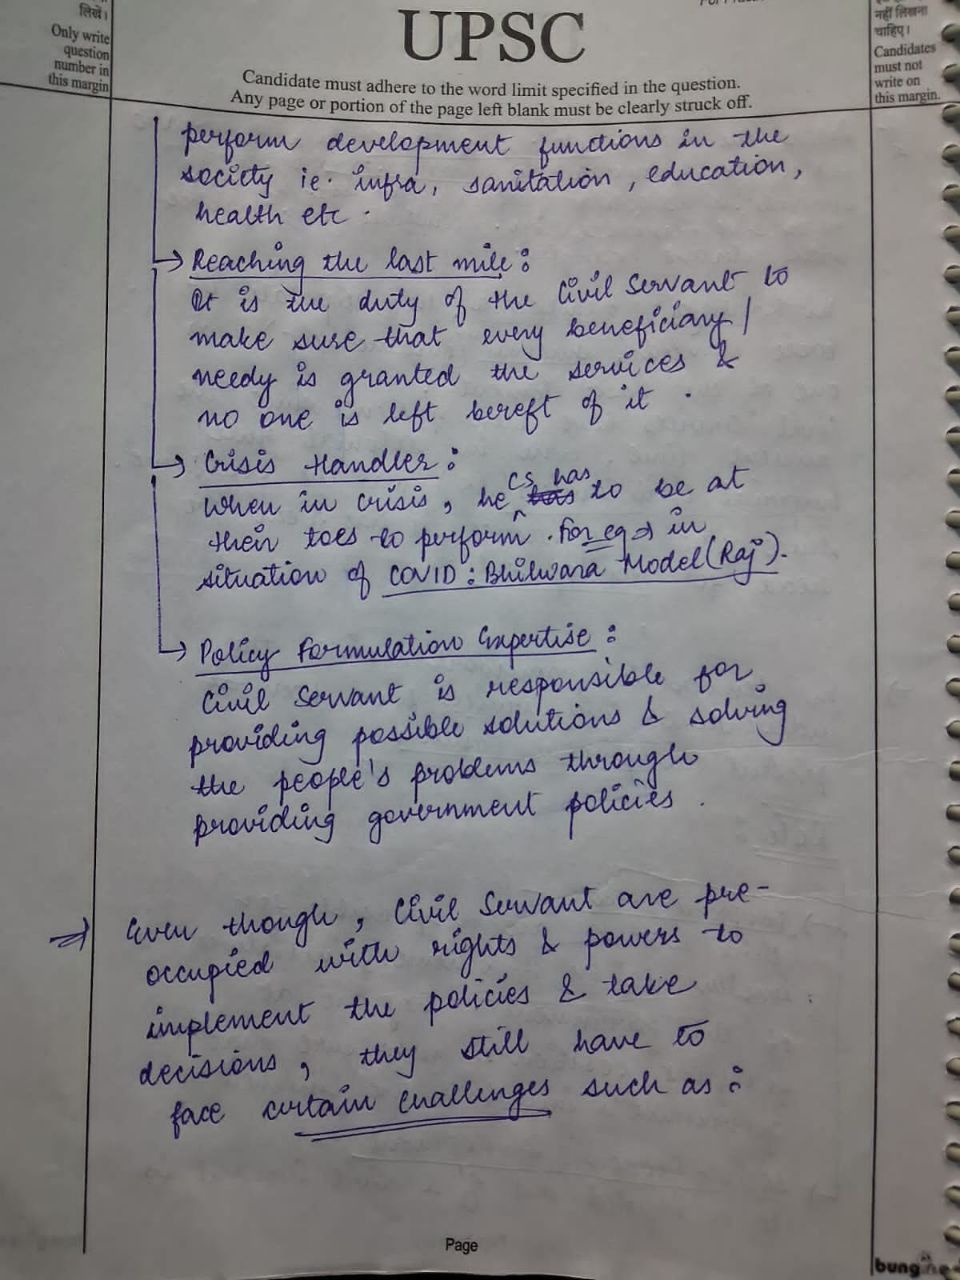 लिखें।
Only write
question
number in
this margin
UPSC
Candidate must adhere to the word limit specified in the question.
Any page or portion of the page left blank must be clearly struck off.
नहीं लिखना
चाहिए।
Candidates
must not
write on
this margin.
perform development functions in the
society ie. infra, sanitation, education,
health etc.
→ Reaching the last mile:
It is the duty of the Civil Servant to
make sure that every beneficiary/
needy is granted the services &
no one is left bereft of it.
→ Crisis Handler:
When in crisis, the CS has to be at
their toes to perform. For eg → in
situation of COVID: Bhilwara Model (Raj).
→ Policy Formulation Expertise:
Civil Servant is responsible for
providing possible solutions & solving
the people's problems through
providing government policies.
⇒ Even though, Civil Servant are pre-
occupied with rights & powers to
implement the policies & take
decisions, they still have to
face certain challenges such as:
Page